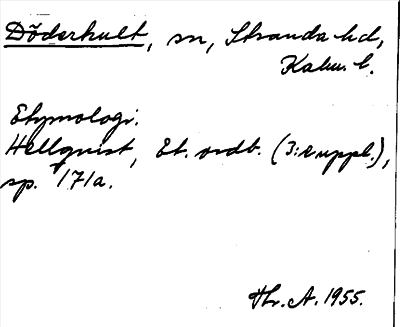 Döderhult, sn, Stranda hd,
Kalm. l.
Etymologi.
Hellquist, Et. ordb. (3:e uppl.),
sp. 171a.
Hr. A. 1955.